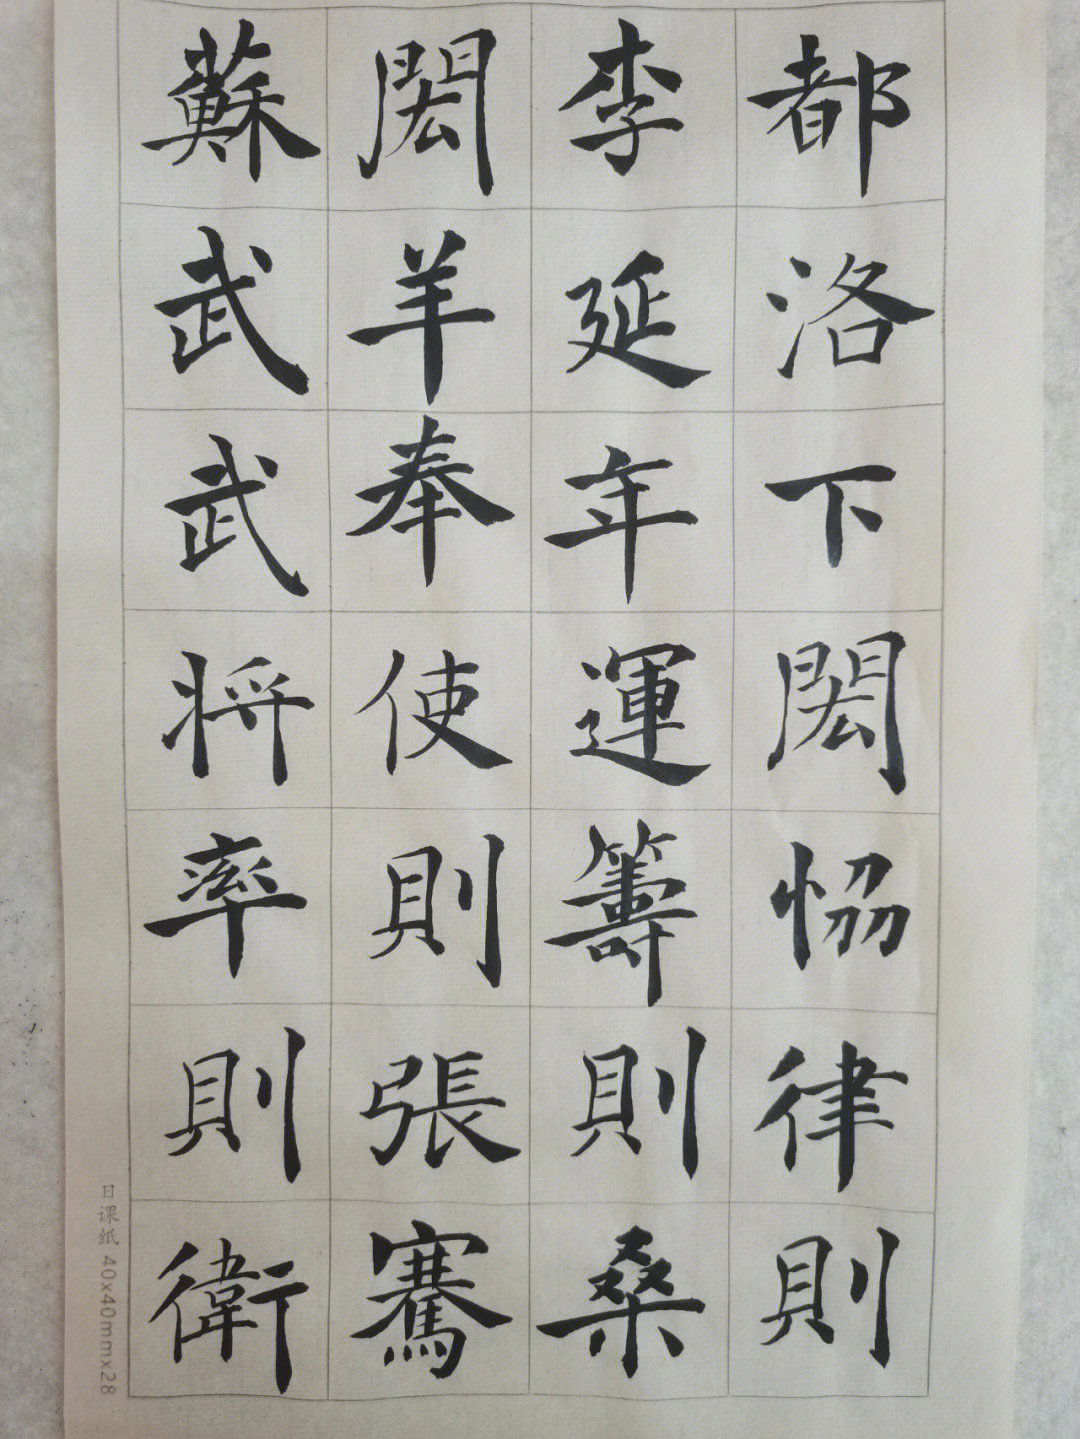 都洛下閎恊律則
李延年運籌則桑
閎羊奉使則張騫
蘇武武将率則衛
日课纸 40x40mmx28